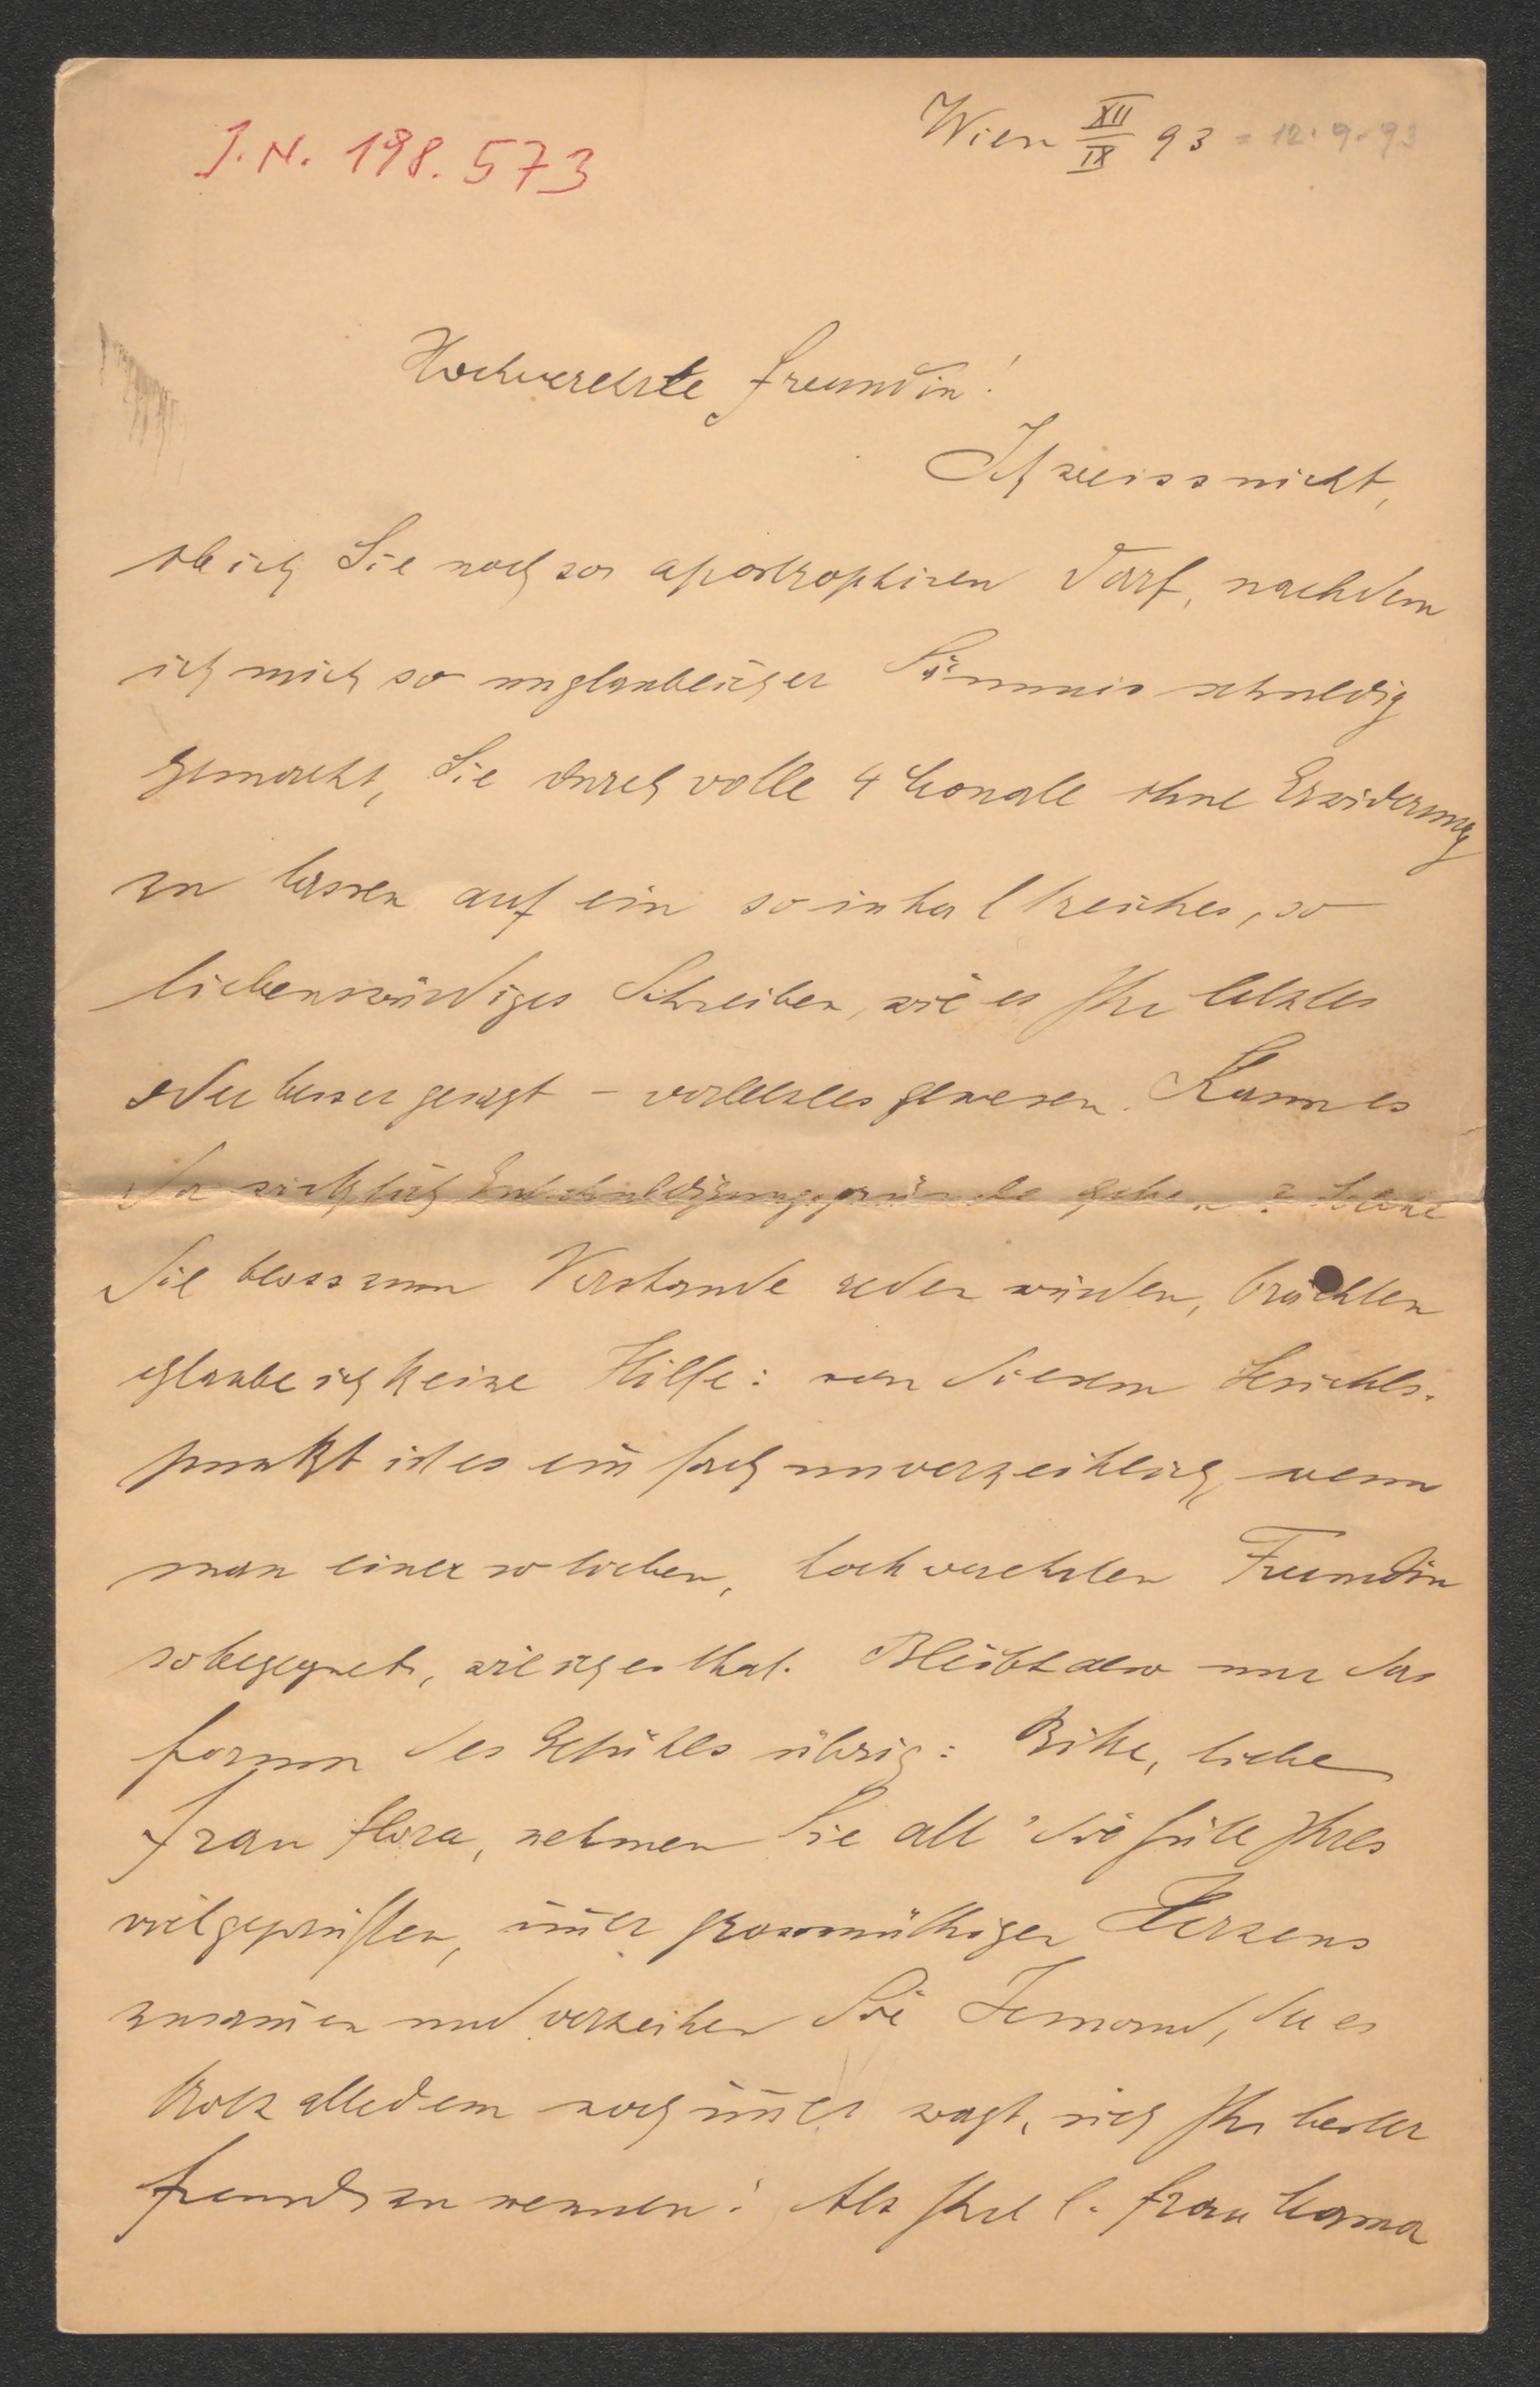 J.N. 198.573
Wien XII/IX 93 = 12.9.93
Hochverehrte Freundin!
Ich weiss nicht,
ob ich Sie noch so apostrophiren darf, nachdem
ich mich so unglaublicher Säumnis schuldig
gemacht, Sie durch volle 4 Monate ohne Erwiderung
zu lassen auf ein so inhaltreiches, so
liebenswürdiges Schreiben, wie es Ihr letztes
oder besser gesagt – vorletztes gewesen. Kann es
da wirklich Entschuldigungsgründe geben? Solche
die bloss zum Verstande reden würden, brächten
glaube ich keine Hilfe: von diesem Gesichts-
punkt ist es einfach unverzeihlich, wenn
man einer so lieben, hochverehrten Freundin
so begegnet, wie ich es that. Bleibt also nur das
Forum des Gefühles übrig: Bitte, liebe
Frau Flora, nehmen Sie all' die Güte Ihres
vielgeprüften, im̅er grossmüthigen Herzens
zusam̅en und verzeihen Sie Jemand, der es
trotz alledem noch im̅er wagt, sich Ihr bester
Freund zu nennen! Als Ihre l. Frau Mama